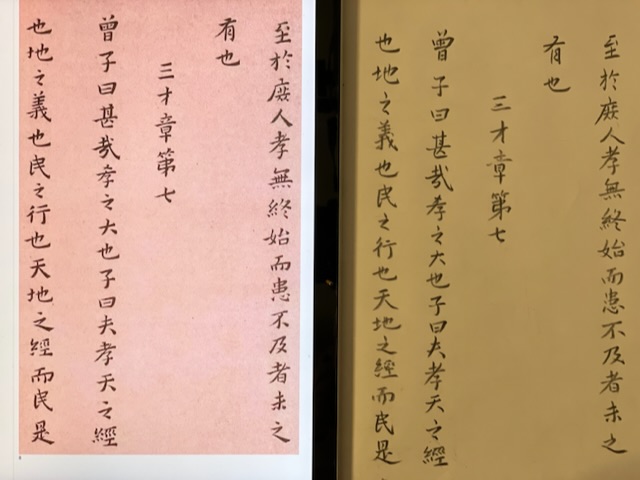 至於庶人孝無終始而患不及者未之
有也
三才章第七
曾子曰甚哉孝之大也子曰夫孝天之經
也地之義也民之行也天地之經而民是
至於庶人孝無終始而患不及者未之
有也
三才章第七
曾子曰甚哉孝之大也子曰夫孝天之經
也地之義也民之行也天地之經而民是